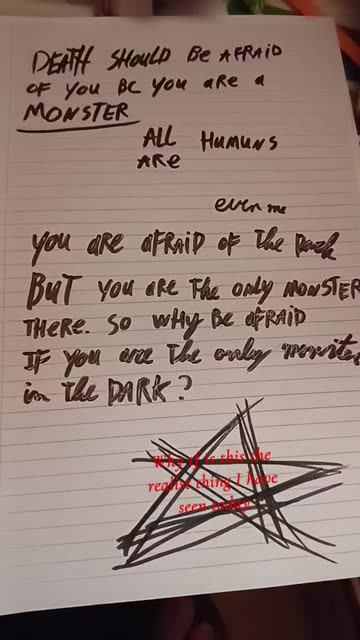 DEATH SHOULD BE AFRAID
OF YOU BC YOU ARE A
MONSTER
ALL HUMUNS
ARE
even me
YOU ARE AFRAID OF THE DARK
BUT YOU ARE THE ONLY MONSTER
THERE. SO WHY BE AFRAID
IF YOU are THE only monster
in THE DARK?
Why tf is this the
realist thing I have
seen today